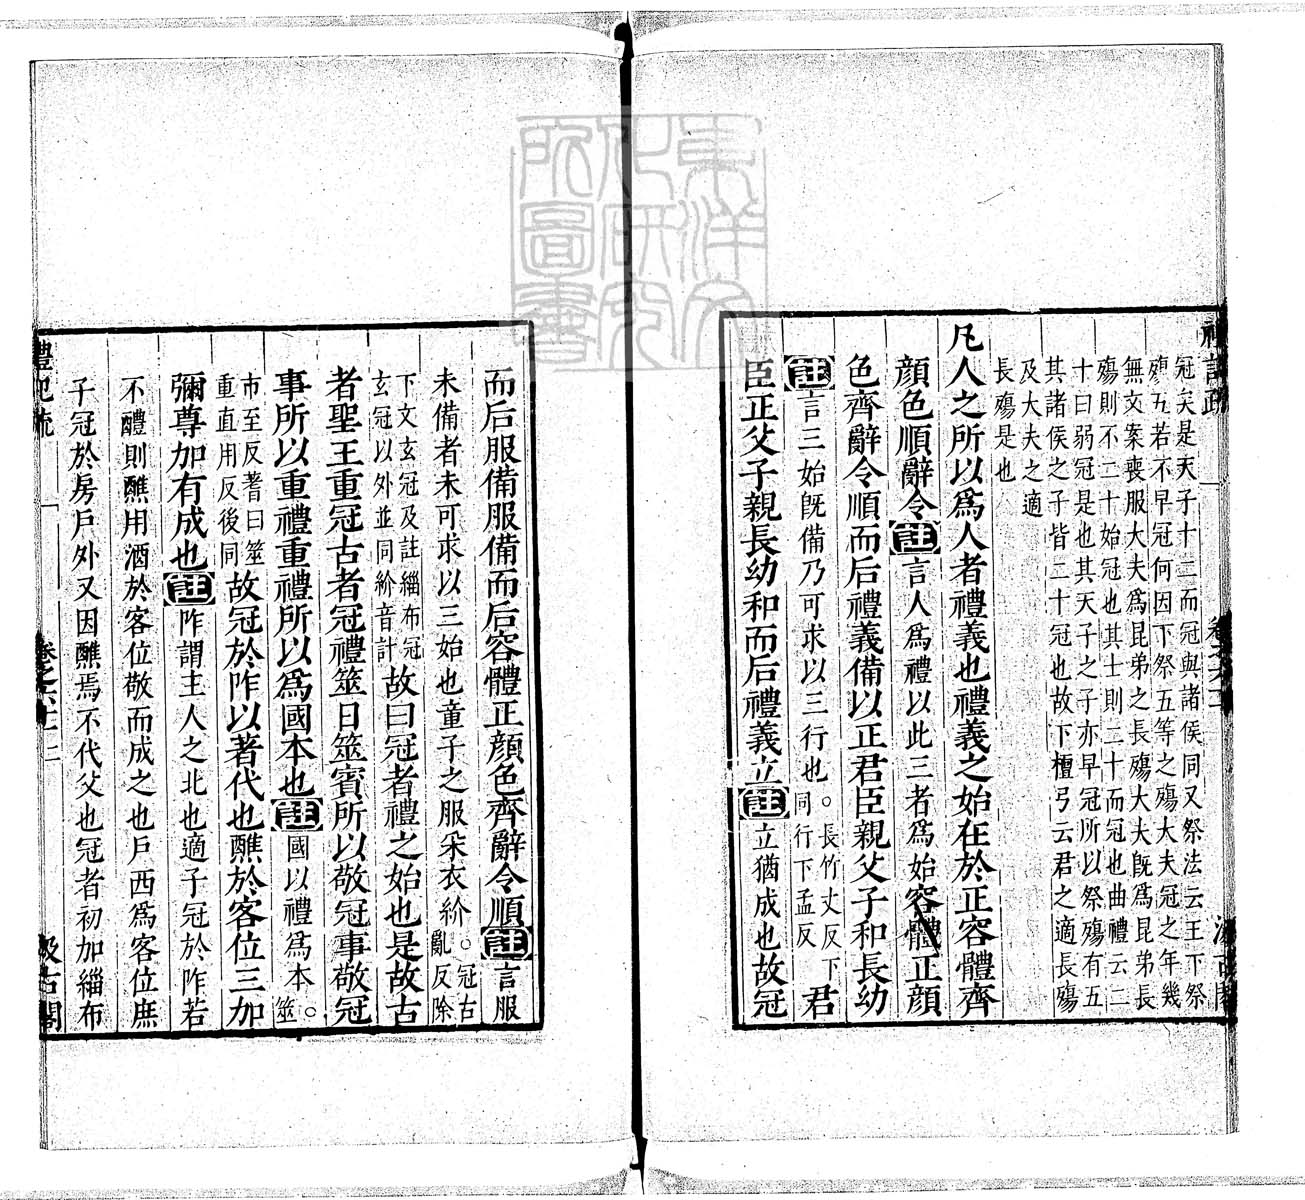 冠矣是天子十二而冠與諸侯同又祭法云王下祭
殤五若不早冠何因下祭五等之殤大夫冠之年幾
無文案喪服大夫爲昆弟之長殤大夫既爲昆弟長
殤則不二十始冠也其士則二十而冠也曲禮云二
十曰弱冠是也其天子之子亦早冠所以祭殤有五
其諸侯之子皆二十冠也故下檀弓云君之適長殤
及大夫之適
長殤是也
凡人之所以爲人者禮義也禮義之始在於正容體齊
顔色順辭令註言人爲禮以此三者爲始容體正顔
色齊辭令順而后禮義備以正君臣親父子和長幼
註言三始既備乃可求以三行也。長竹丈反下同行下孟反君
臣正父子親長幼和而后禮義立註立猶成也故冠
而后服備服備而后容體正顔色齊辭令順註言服
未備者未可求以三始也童子之服采衣紒。冠古亂反除
下文玄冠及註緇布冠玄冠以外並同紒音計故曰冠者禮之始也是故古
者聖王重冠古者冠禮筮日筮賓所以敬冠事敬冠
事所以重禮重禮所以爲國本也註國以禮爲本。筮
市至反蓍曰筮重直用反後同故冠於阼以著代也醮於客位三加
彌尊加有成也註阼謂主人之北也適子冠於阼若
不醴則醮用酒於客位敬而成之也戶西爲客位庶
子冠於房戶外又因醮焉不代父也冠者初加緇布
禮記疏
卷之六十一
二
汲古閣
東洋文化研究所圖書